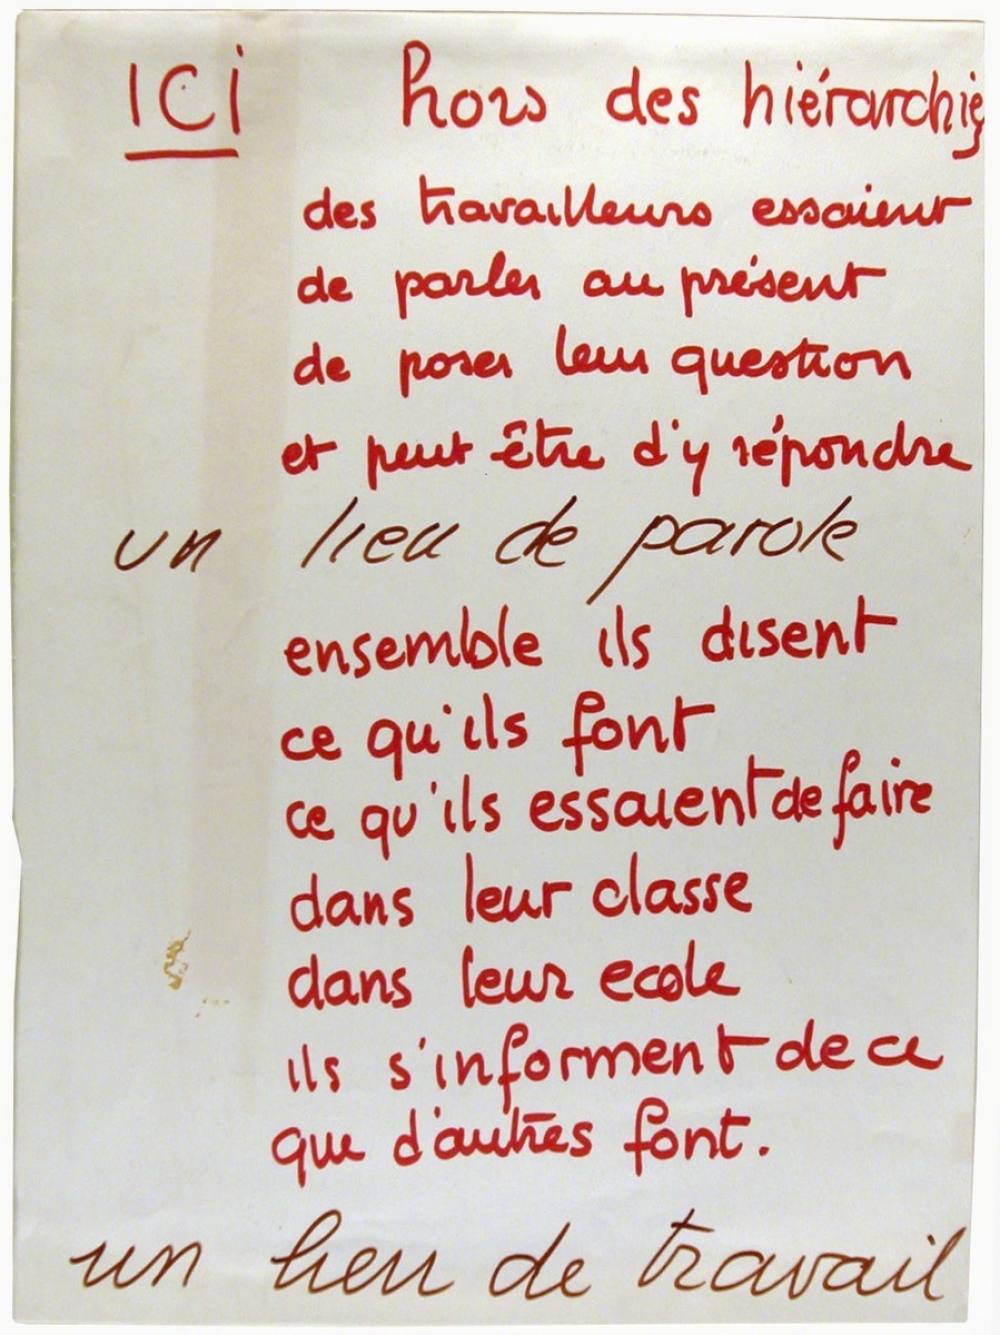 ICI hors des hiérarchies
des travailleurs essaient
de parler au présent
de poser leur question
et peut être d'y répondre
un lieu de parole
ensemble ils disent
ce qu'ils font
ce qu'ils essaient de faire
dans leur classe
dans leur ecole
ils s'informent de ce
que d'autres font.
un lieu de travail